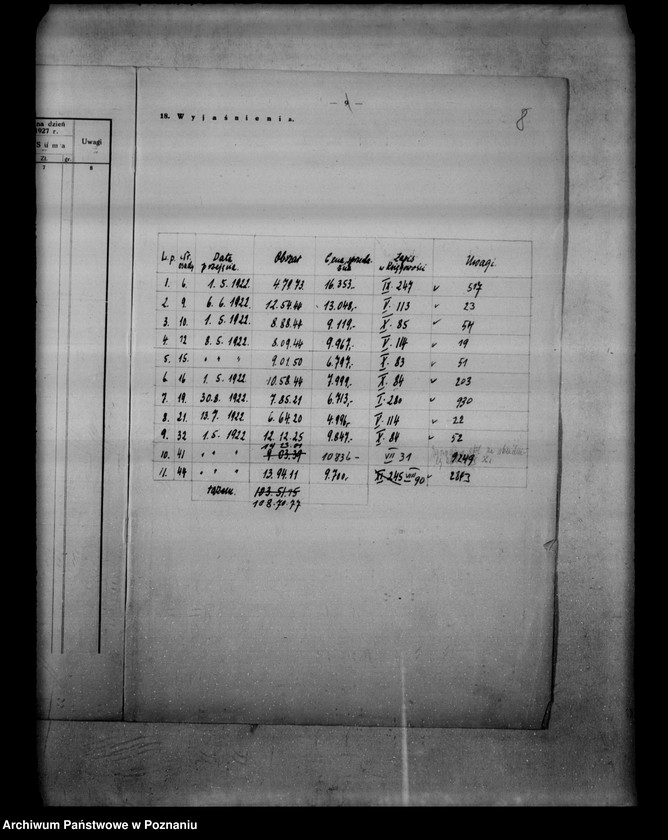 na dzień
1927 r.
Suma
Uwagi
Zł. gr.
7 8
8
18. Wyjaśnienia.
L.p. Nr. Data Obszar Cena Zapis Uwagi.
1. 6. 1.5.1922. 4.79.73 16.353.- IX. 247 v 517
2. 9. 6.6.1922. 12.54.44 13.048,- V. 113 v 23
3. 10. 1.5.1922. 8.88.44 9.119.- X. 85 v 54
4. 12 8.5.1922. 8.09.44 9.967.- V. 114 v 19
5. 15. " " " 9.01.50 6.797.- X. 83 v 51
6 16 1.5.1922 10.58.44 7.999.- X. 84 v 203
7. 19. 30.8.1922. 7.85.21 6.713,- I. 280 v 930
8. 21. 13.7.1922 6.64.20 4.996,- V. 114 v 22
9. 32 1.5.1922 12.12.25 9.847.- X. 84 v 52
14 23.01
10. 41 " " " 9 03.39 10836 - VII 31 9249
11. 44 " " " 13.94.11 9.700,- XI 245 VIII 90 v 2813
razem. 103.51.15
108.70.77
Archiwum Państwowe w Poznaniu